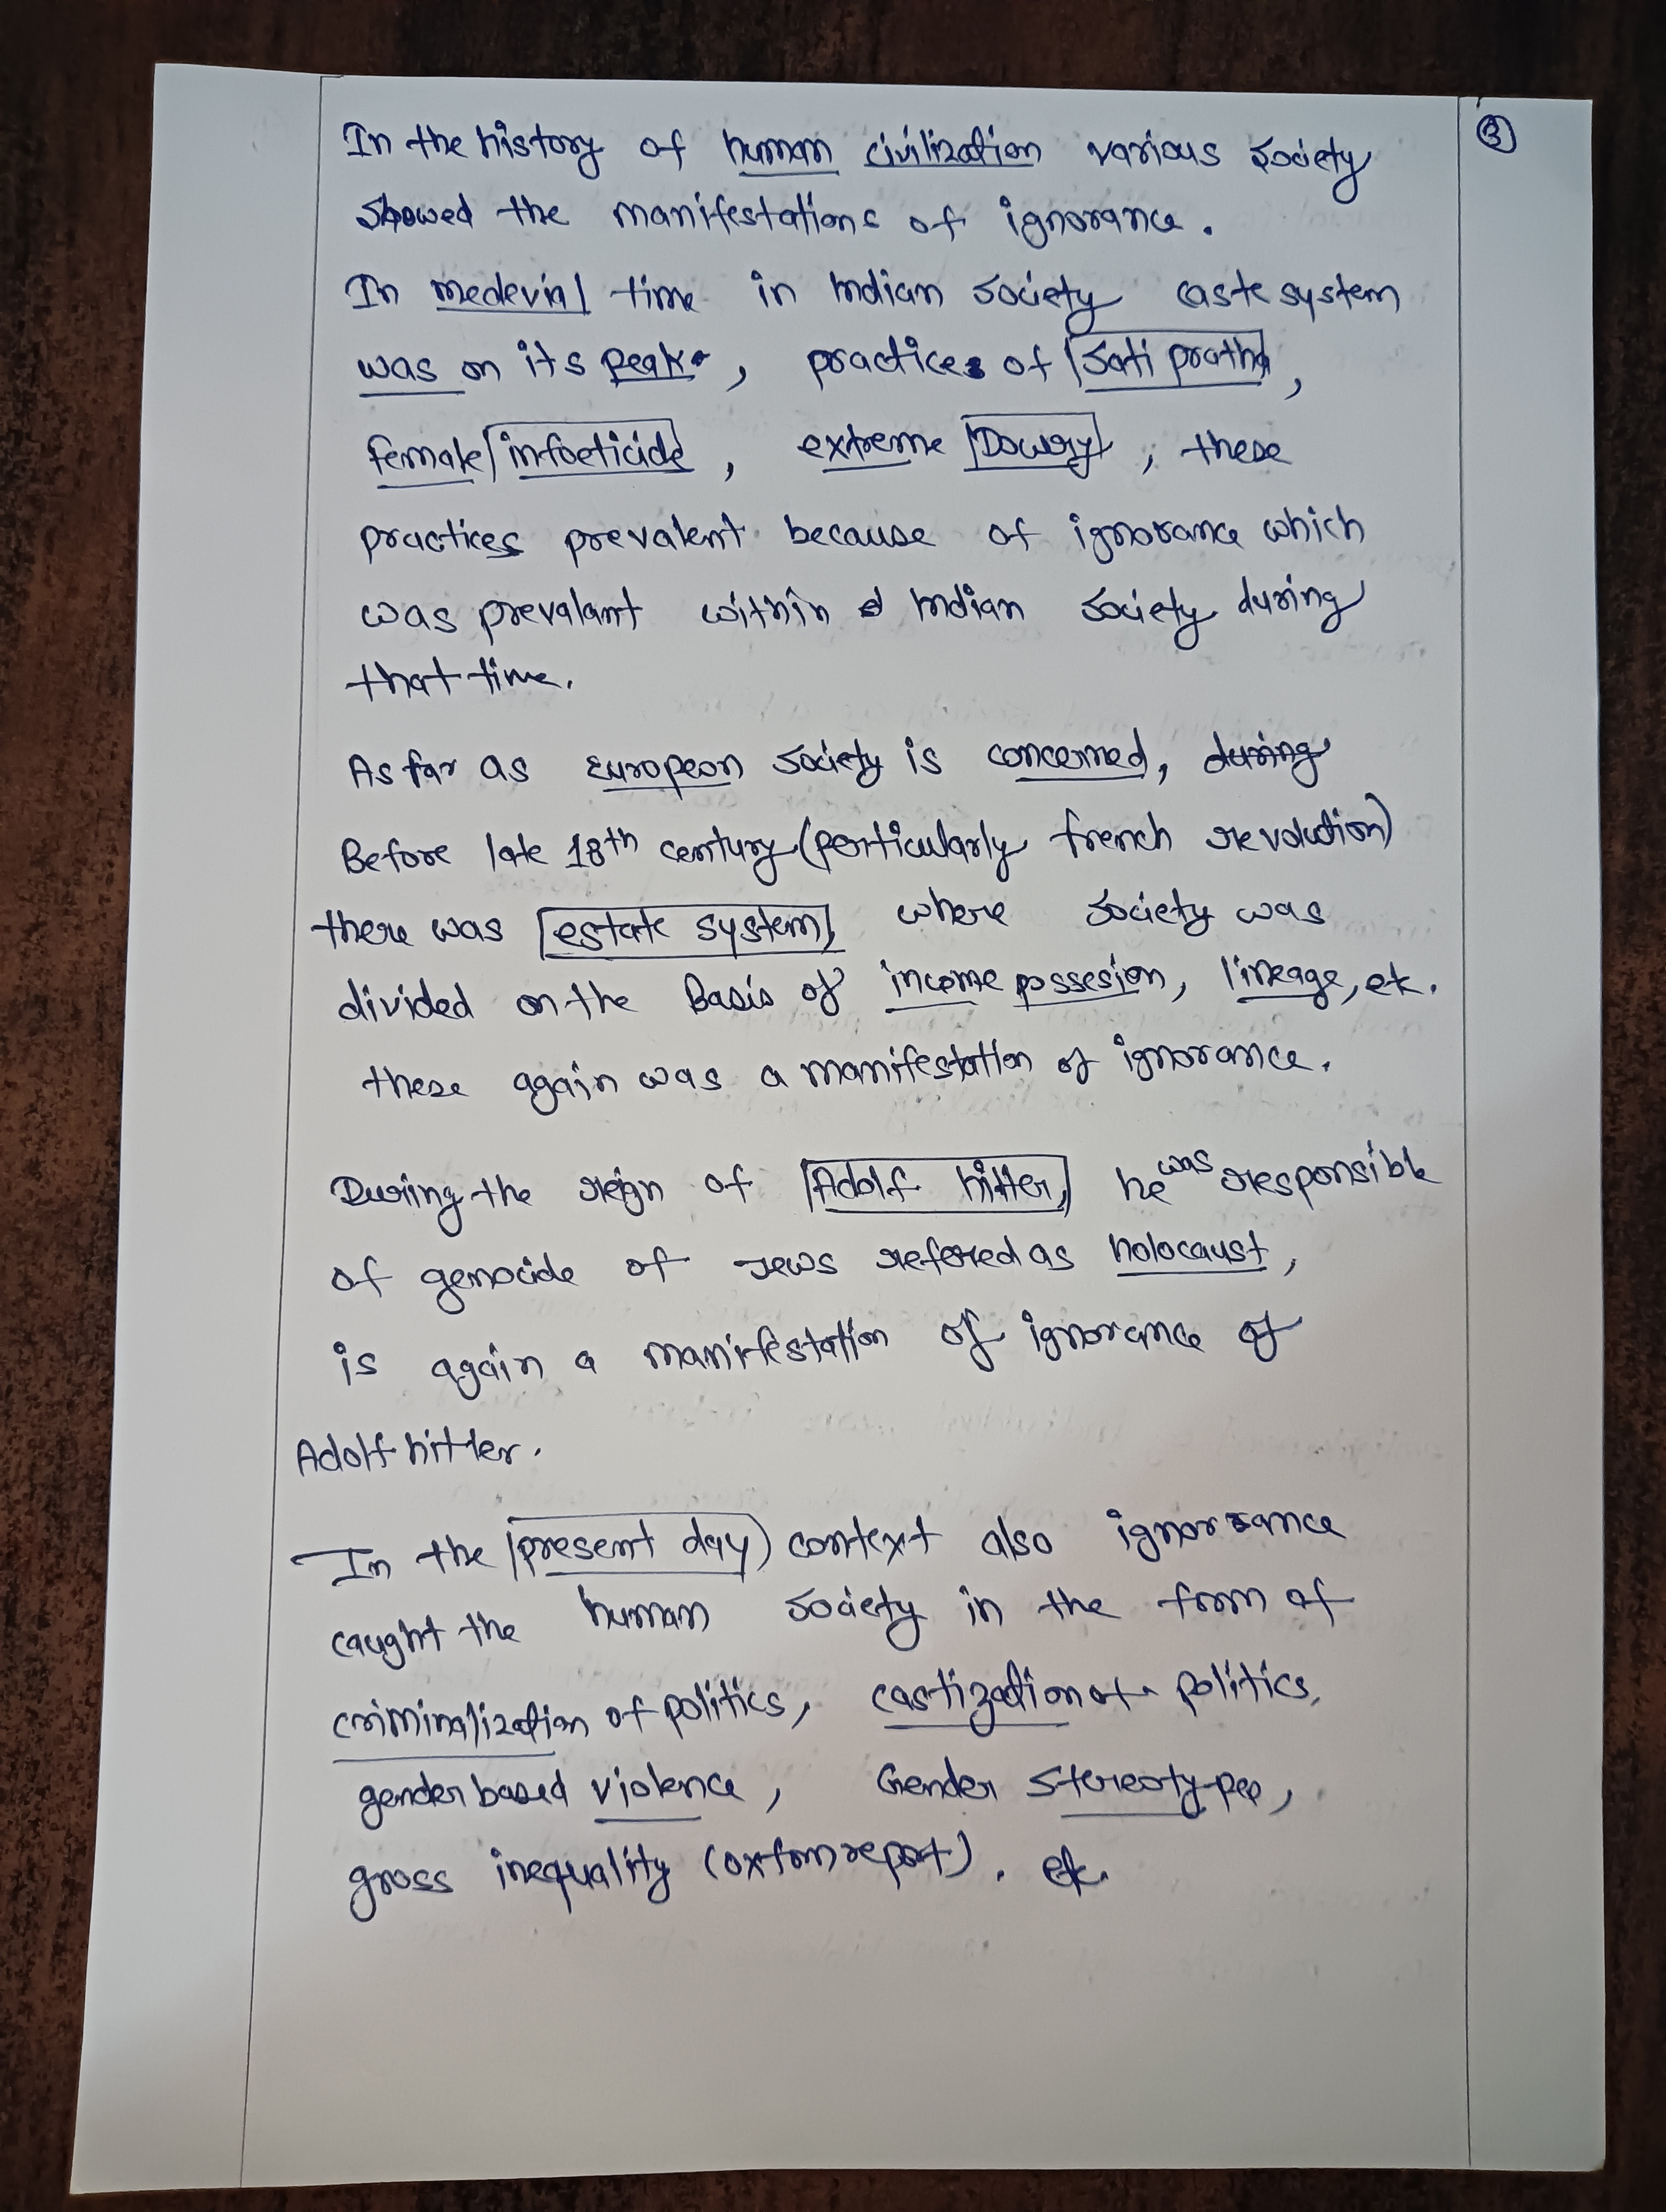 3
In the history of human civilization various society
showed the manifestations of ignorance.
In medevial time in Indian society caste system
was on its peak, practices of Sati pratha,
female infoeticide, extreme Dowry, these
practices prevalent because of ignorance which
was prevalant within Indian society during
that time.
As far as European society is concerned, during
Before late 18th century (perticularly french revolution)
there was estate system, where society was
divided on the Basis of income possesion, lineage, etc.
these again was a manifestation of ignorance.
During the reign of Adolf hitler, he was responsible
of genocide of Jews refered as holocaust,
is again a manifestation of ignorance of
Adolf hitler.
In the present day context also ignorance
caught the human society in the form of
criminalization of politics, castization of politics,
gender based violence, Gender stereotypes,
gross inequality (oxfam report). etc.